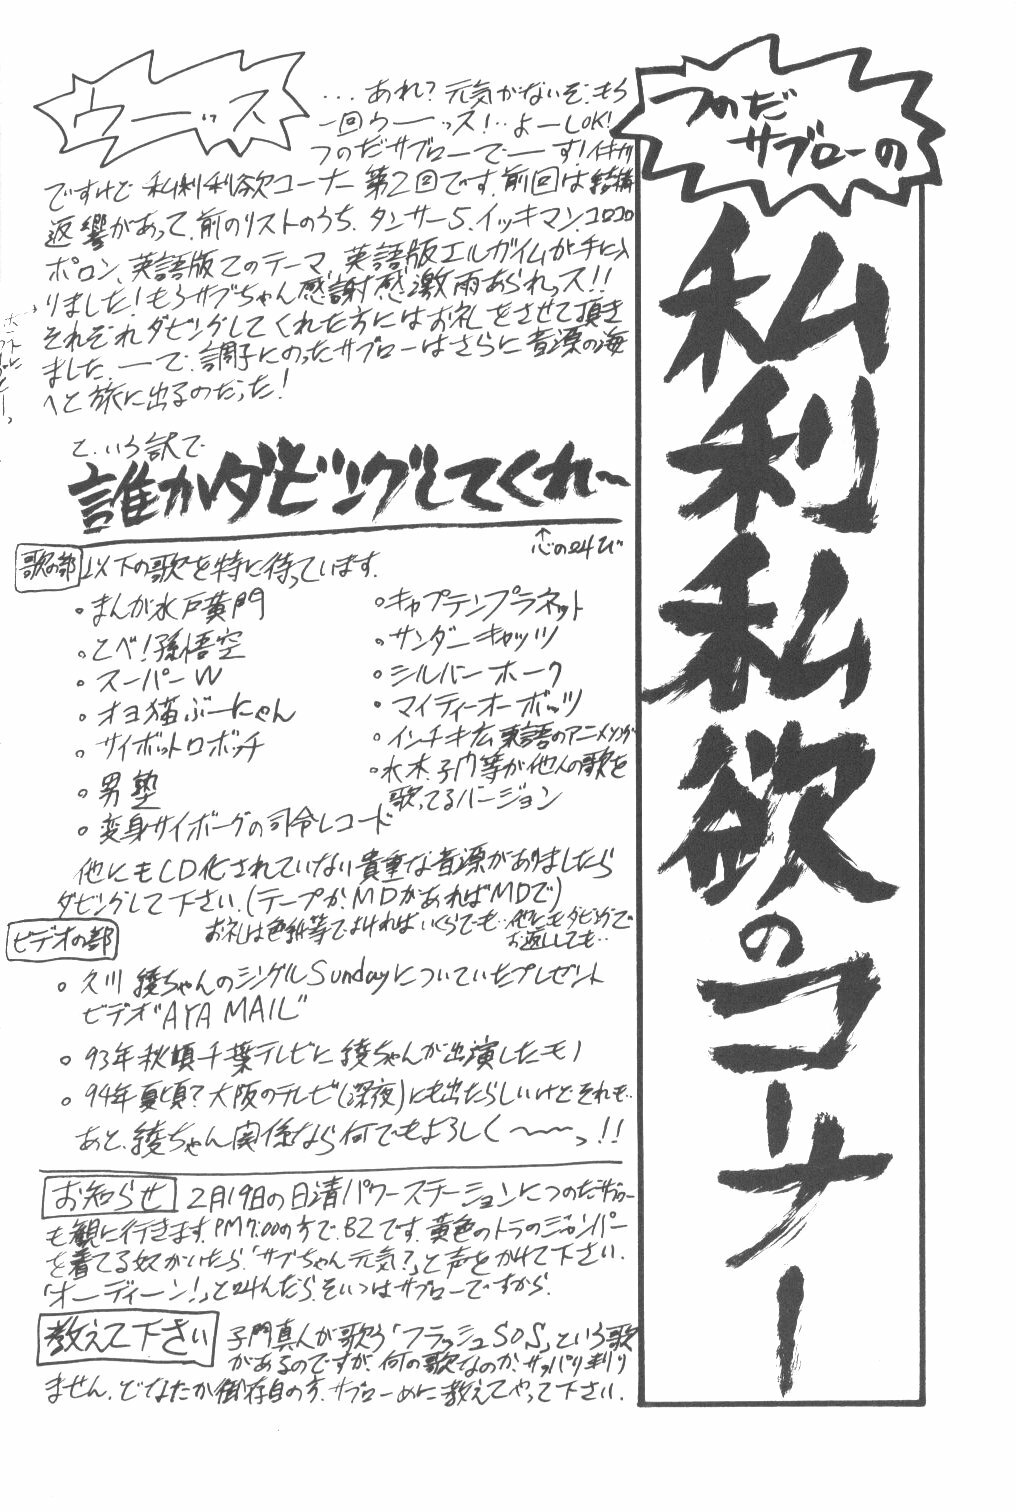 つのだ
サブローの
私利私欲のコーナー
ウーッス
...あれ?元気がないぞ.もう
一回ウーッス!..よーしOK!
つのだサブローでーす!イキナリ
ですけど私利私欲コーナー第2回です.前回は結構
返響があって.前のリストのうち.タンサー5.イッキマン.コロコロ
ポロン、英語版Zのテーマ、英語版エルガイムが手に入
りました!もうサブちゃん感謝感激雨あられっス!!
それぞれダビングしてくれた方にはお礼をさせて頂き
ました.ーで.調子にのったサブローはさらに音源の海
へと旅に出るのだった!
と.いう訳で
誰かダビングしてくれ〜
↑
心の叫び
歌の部 以下の歌を特に待っています.
・まんが水戸黄門
・とべ!孫悟空
・スーパーW
・オヨ猫ぶーにゃん
・サイボットロボッチ
・男塾
・変身サイボーグの司令レコード
・キャプテンプラネット
・サンダーキャッツ
・シルバーホーク
・マイティーオーボッツ
・インチキ広東語のアニメソング
・水木.子門等が他人の歌を
歌ってるバージョン
他にもCD化されていない貴重な音源がありましたら
ダビングして下さい.(テープか.MDがあればMDで)
お礼は色紙等でよければいくらでも..他にもダビングで
お返ししても..
ビデオの部
。久川綾ちゃんのシングルSundayについていたプレゼント
ビデオ"AYA MAIL"
。93年秋頃千葉テレビに綾ちゃんが出演したモノ
。94年夏頃?大阪のテレビ(深夜)にも出たらしいけど.それも..
あと、綾ちゃん関係なら何でもよろしく〜〜っ!!
お知らせ 2月19日の日清パワーステーションにつのだサブロー
も観に行きます.PM7:00の方でB2です.黄色のトラのジャンパー
を着てる奴がいたら.「サブちゃん元気?」と声をかけて下さい.
「オーディーン!」と叫んだら.そいつはサブローですから.
教えて下さい 子門真人が歌う「フラッシュSOS」という歌
があるのですが.何の歌なのか.サッパリ判り
ません.どなたか御存自の方.サブローめに教えてやって下さい.